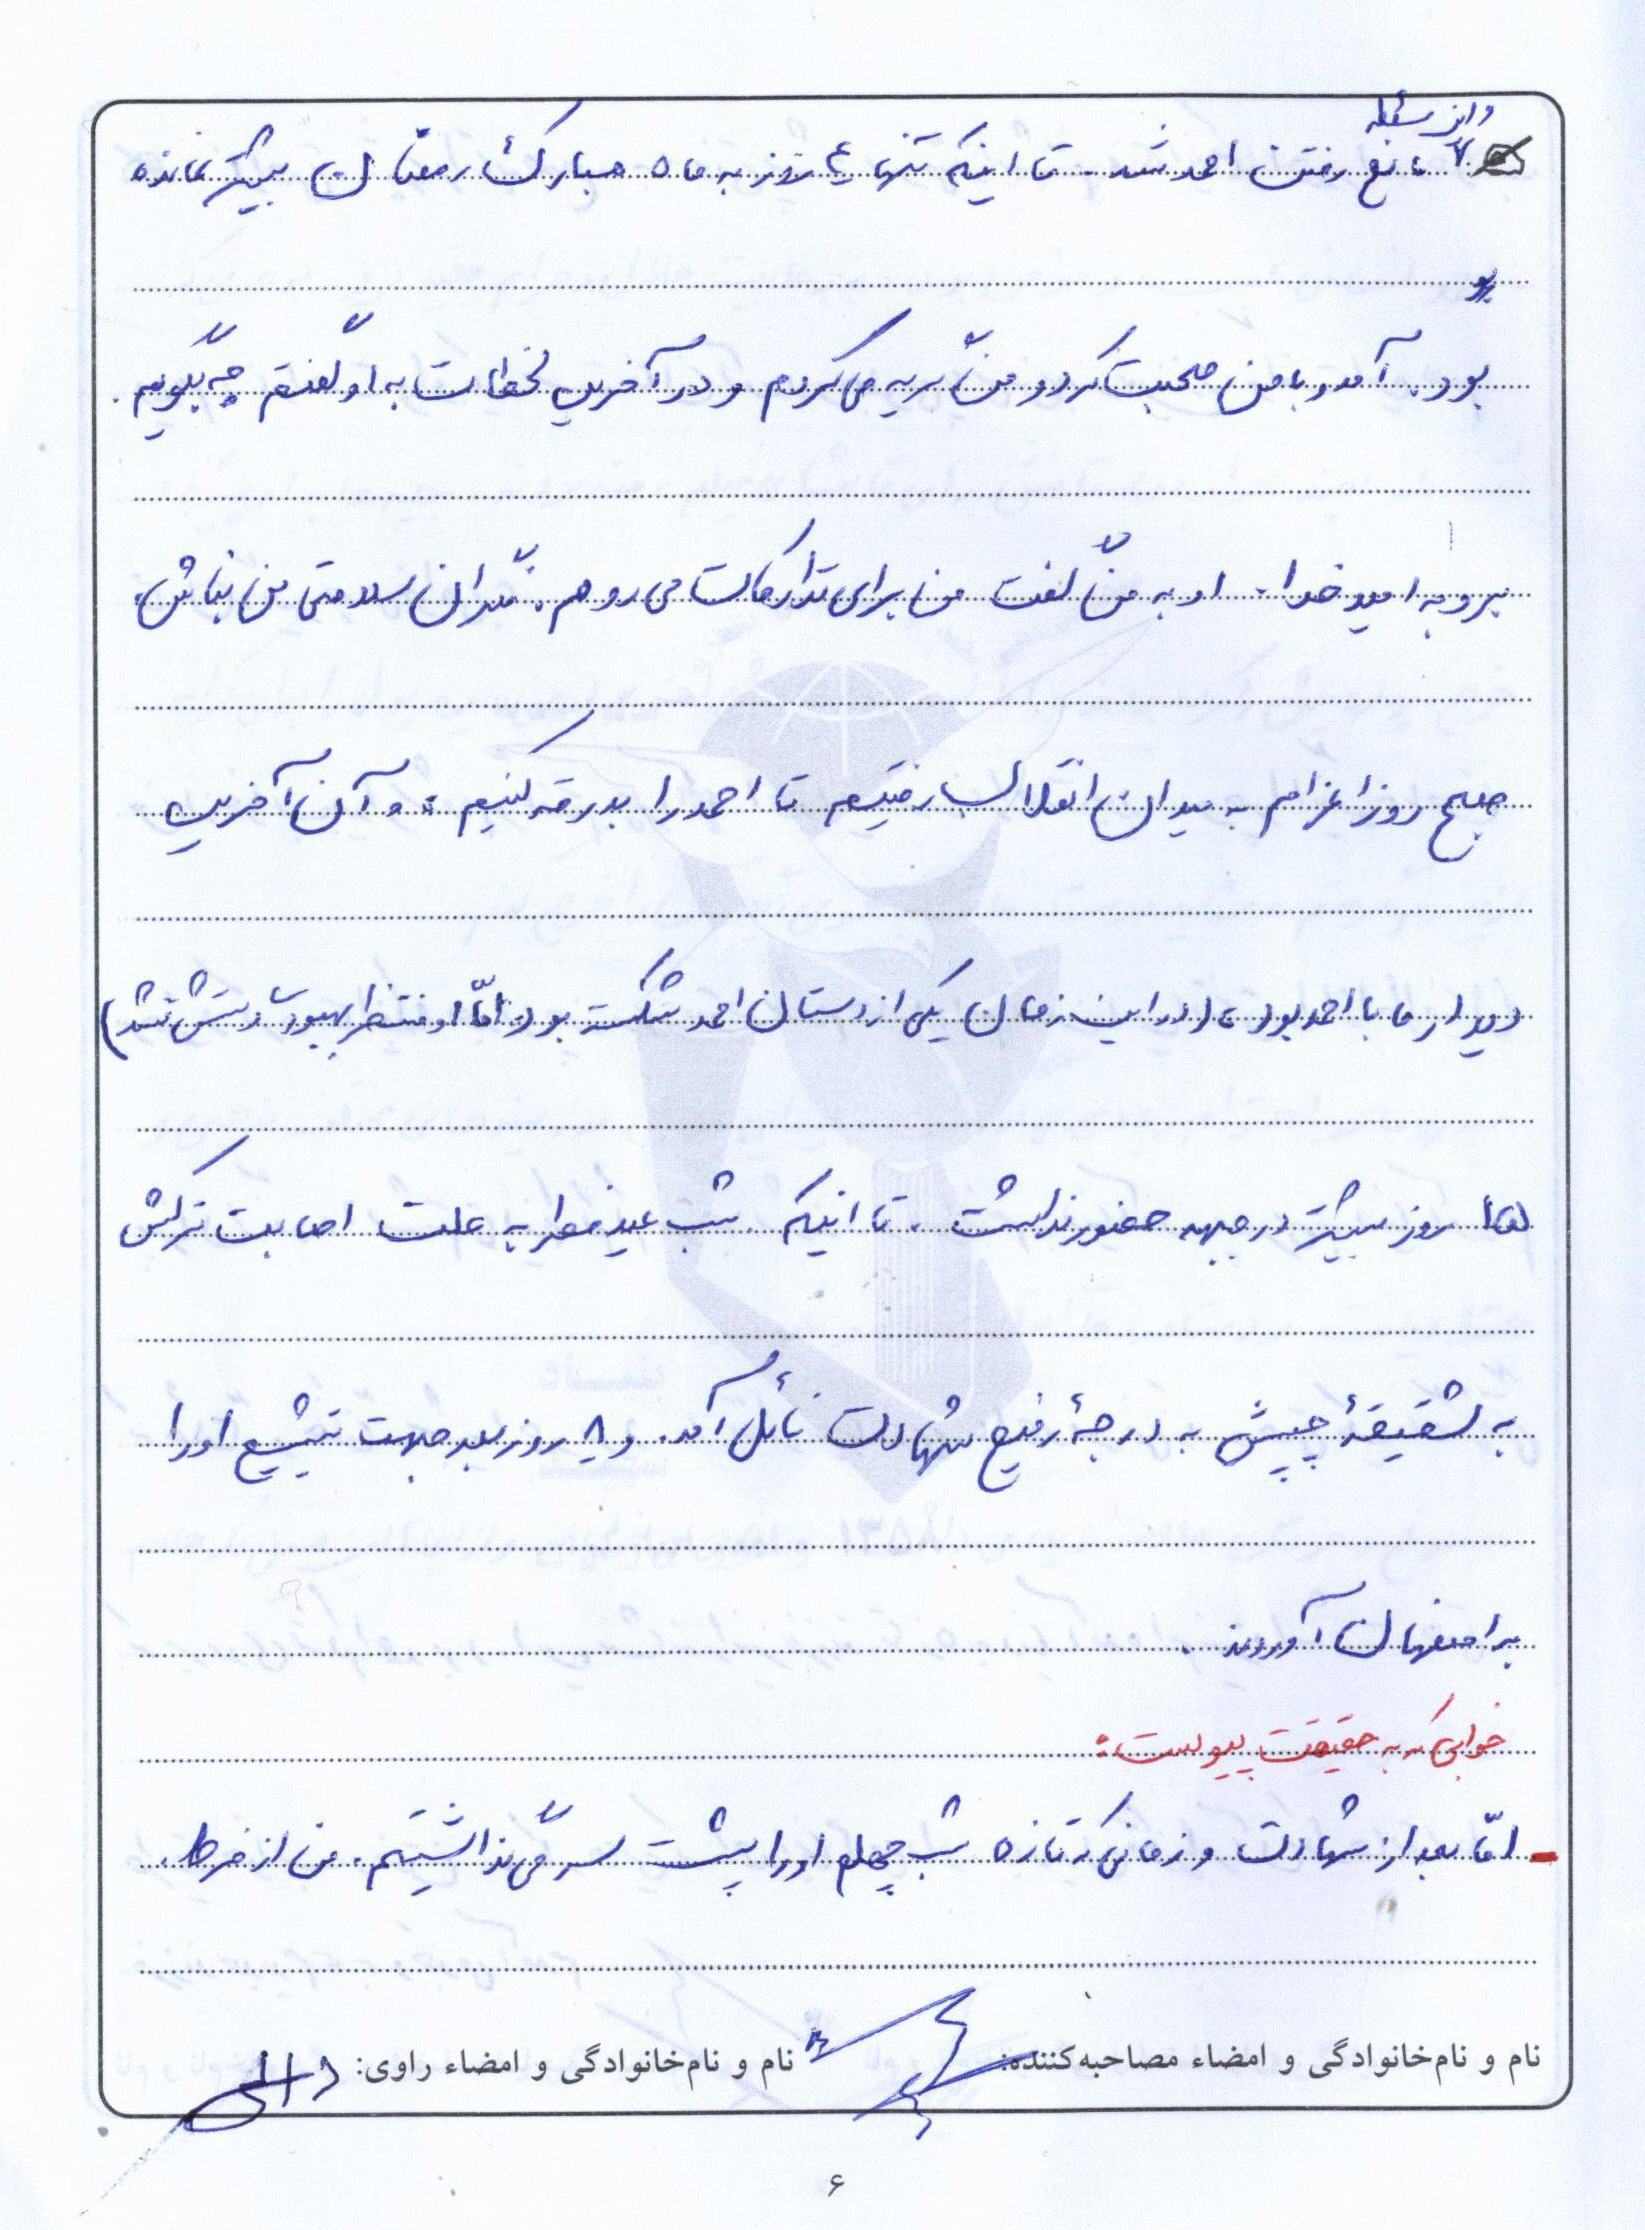 و این مسئله
مانع رفتن احمد شد. تا اینکه تنها ۴ روز به ماه مبارک رمضان بیشتر نمانده
بود. آمد و با من صحبت کرد و من گریه می کردم و در آخرین لحظات به او گفتم چه بگویم.
برو به امید خدا. او به من گفت من برای تدارکات می روم. نگران سلامتی من نباش.
صبح روز اعزام به میدان انقلاب رفتیم تا احمد را بدرقه کنیم. و آن آخرین
دیدار ما با احمد بود، (در این زمان یکی از دستان احمد شکسته بود امّا او منتظر بهبود دستش نشد)
روز بیشتر در جبهه حضور نداشت. تا اینکه شب عید فطر به علت اصابت ترکش
به شقیقهٔ چپش به درجهٔ رفیع شهادت نائل آمد. و ۸ روز بعد جهت تشییع او را
به اصفهان آوردند.
خوابی که به حقیقت پیوست:
- امّا بعد از شهادت و زمانی که تازه شب چهلم او را پشت سر می گذاشتیم. من از فرط
نام و نام‌خانوادگی و امضاء مصاحبه‌کننده:
نام و نام‌خانوادگی و امضاء راوی:
۶